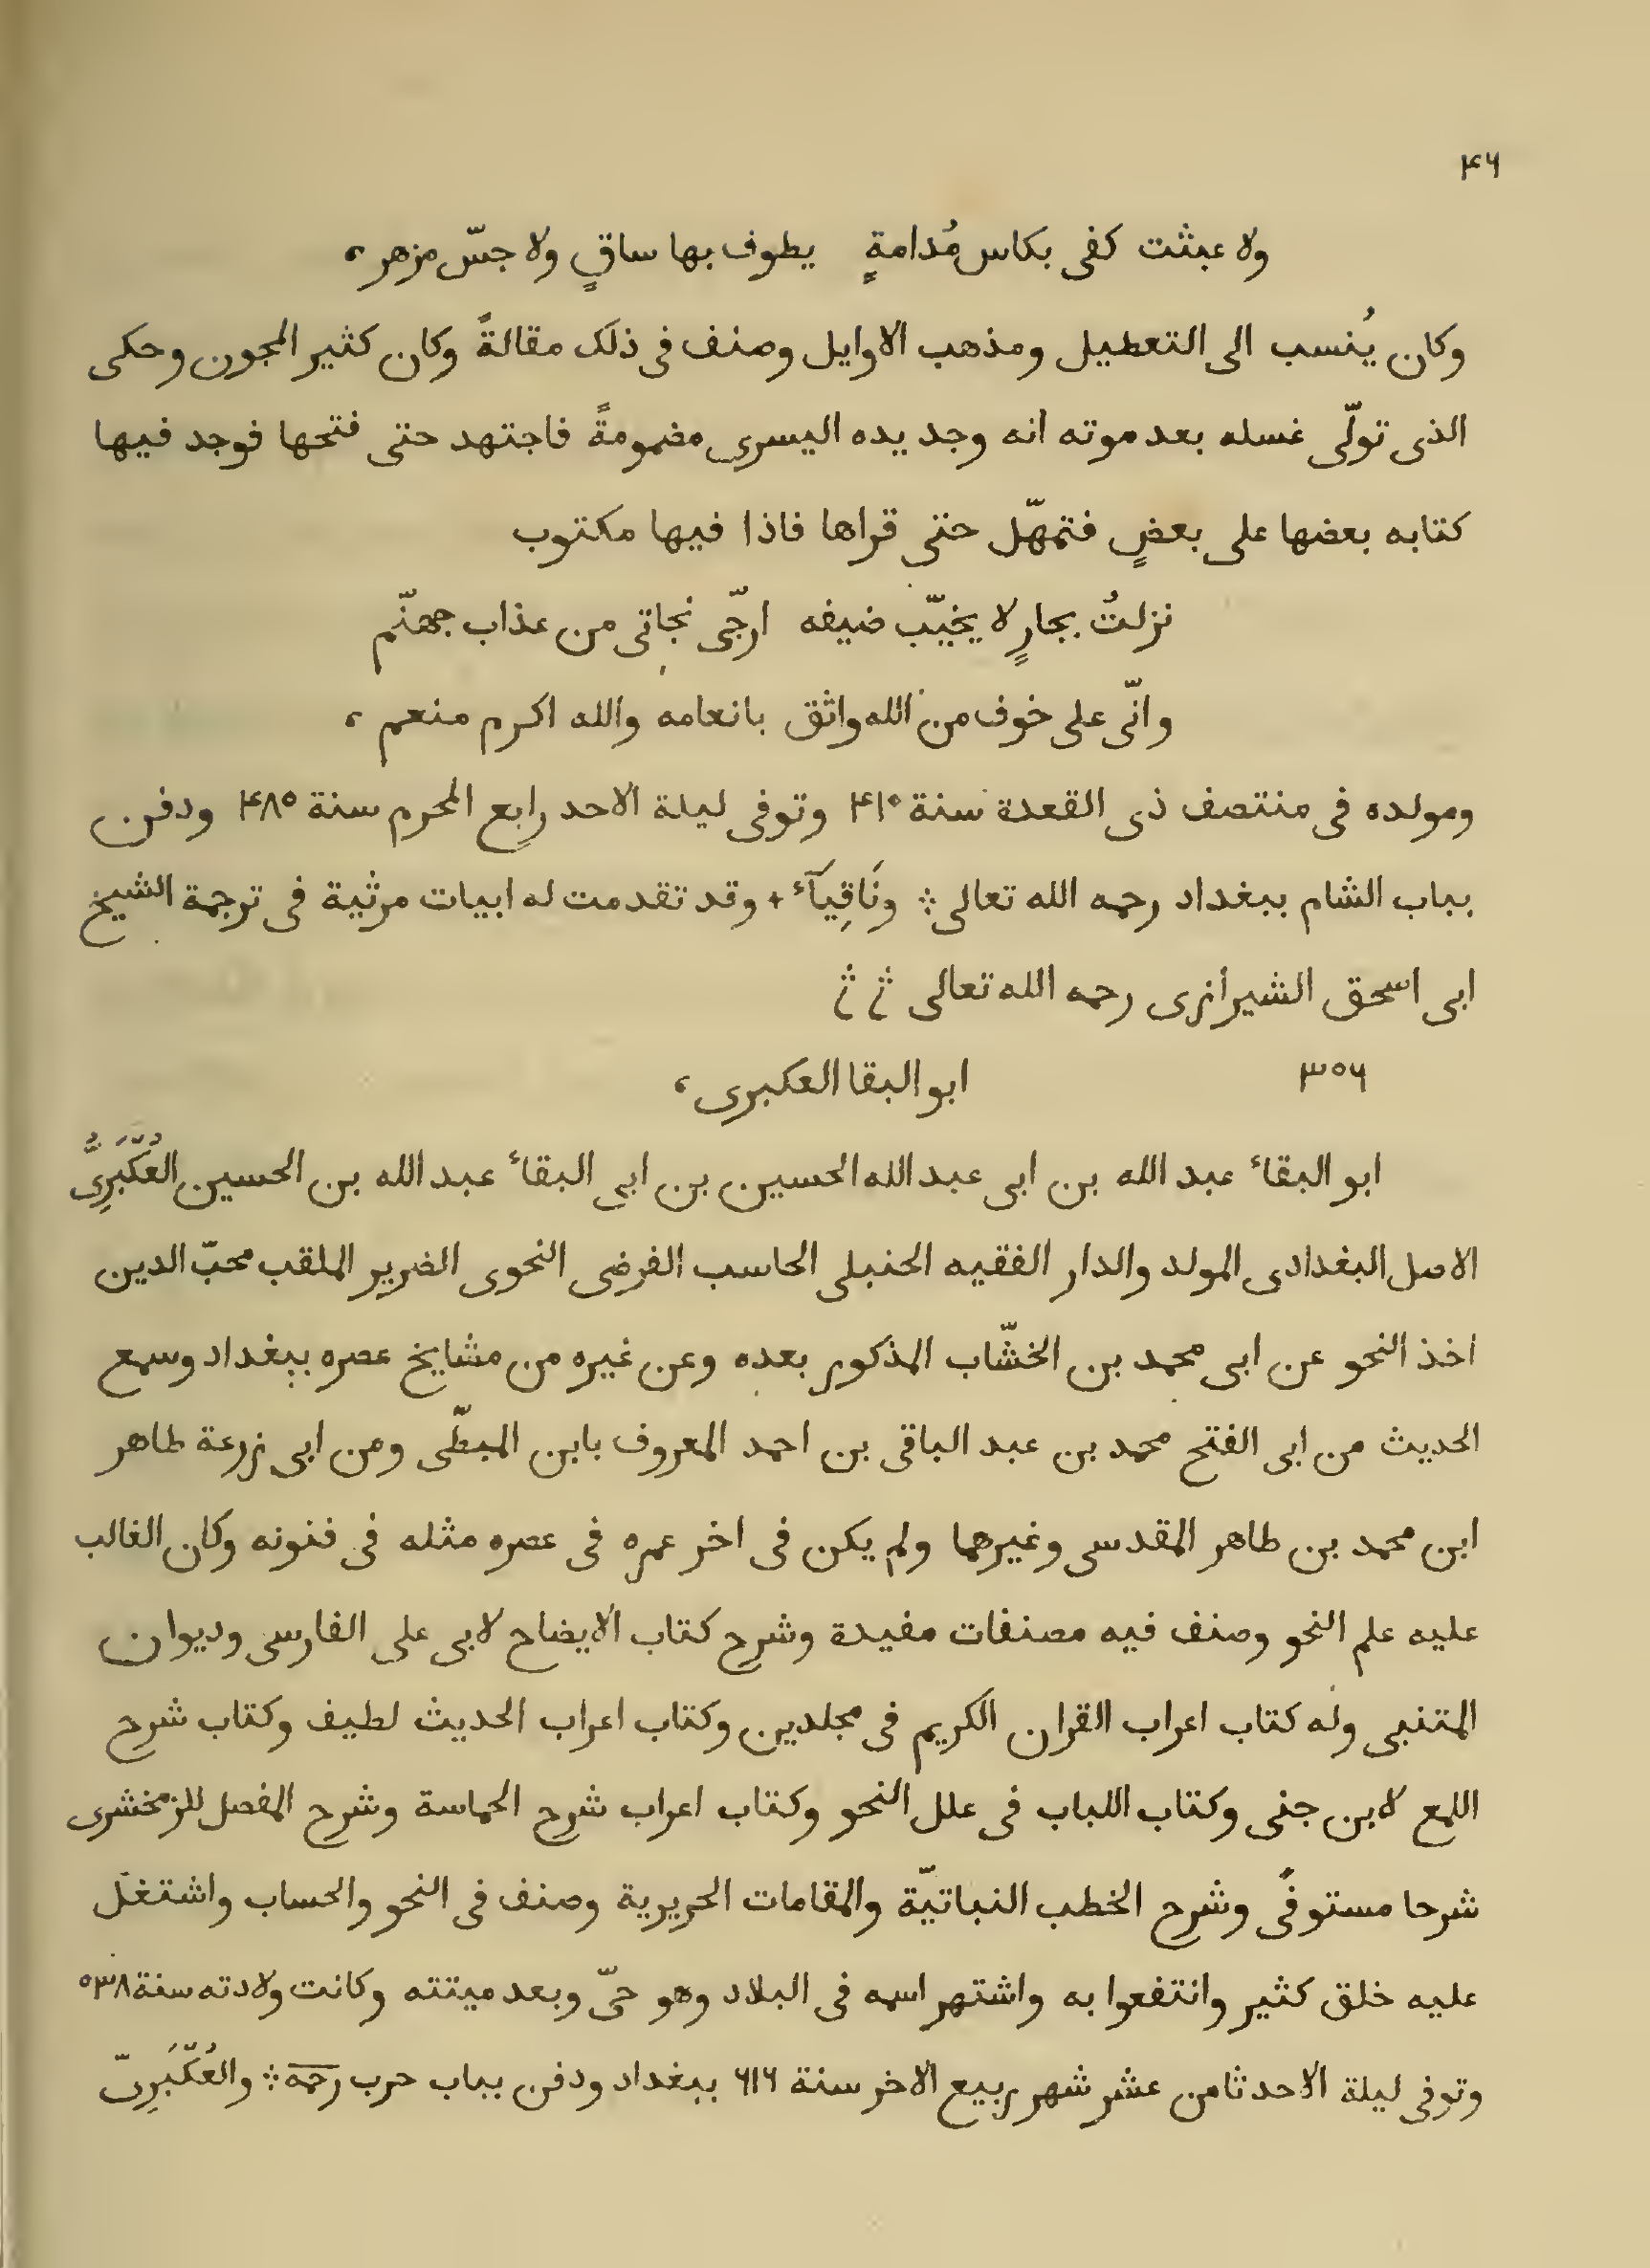 ۴۶
ولا عبثت كفى بكاس مُدامةٍ يطوف بها ساقٍ ولا جسّ مزهر ،
وكان يُنسب الى التعطيل ومذهب الاوايل وصنف فى ذلك مقالةً وكان كثير المجون وحكى
الذى تولّى غسله بعد موته انه وجد يده اليسرى مضمومةً فاجتهد حتى فتحها فوجد فيها
كتابه بعضها على بعضٍ فتمهّل حتى قراها فاذا فيها مكتوب
نزلتُ بجارٍ لا يخيّب ضيفه ارجّى نجاتى من عذاب جهنّم
وانّى على خوف من الله واثق بانعامه والله اكرم منعم ،
ومولده فى منتصف ذى القعدة سنة ۴۱۰ وتوفى ليلة الاحد رابع المحرم سنة ۴۸۵ ودفن
بباب الشام ببغداد رحمه الله تعالى ⁘ ونَاقِيَآءُ + وقد تقدمت له ابيات مرثية فى ترجمة الشيخ
ابى اسحق الشيرازى رحمه الله تعالى
۳۵۶ ابو البقا العكبرى ،
ابو البقاء عبد الله بن ابى عبد الله الحسين بن ابى البقاء عبد الله بن الحسين العُكّبَرِىُّ
الاصل البغدادى المولد والدار الفقيه الحنبلى الحاسب الفرضى النحوى الضرير الملقب محبّ الدين
اخذ النحو عن ابى محمد بن الخشّاب المذكور بعده وعن غيره من مشايخ عصره ببغداد وسمع
الحديث من ابى الفتح محمد بن عبد الباقى بن احمد المعروف بابن المبطّى ومن ابى زرعة طاهر
ابن محمد بن طاهر المقدسى وغيرهما ولم يكن فى اخر عمره فى عصره مثله فى فنونه وكان الغالب
عليه علم النحو وصنف فيه مصنفات مفيدة وشرح كتاب الايضاح لابى على الفارسى وديوان
المتنبى وله كتاب اعراب القران الكريم فى مجلدين وكتاب اعراب الحديث لطيف وكتاب شرح
اللمع لابن جنى وكتاب اللباب فى علل النحو وكتاب اعراب شرح الحماسة وشرح المفصل للزمخشرى
شرحا مستوفًى وشرح الخطب النباتيّة والمقامات الحريرية وصنف فى النحو والحساب واشتغل
عليه خلق كثير وانتفعوا به واشتهر اسمه فى البلاد وهو حىّ وبعد ميتته وكانت ولادته سنة ۵۳۸
وتوفى ليلة الاحد ثامن عشر شهر ربيع الاخر سنة ۶۱۶ ببغداد ودفن بباب حرب رحمه ⁘ والعُكّبَرِىّ